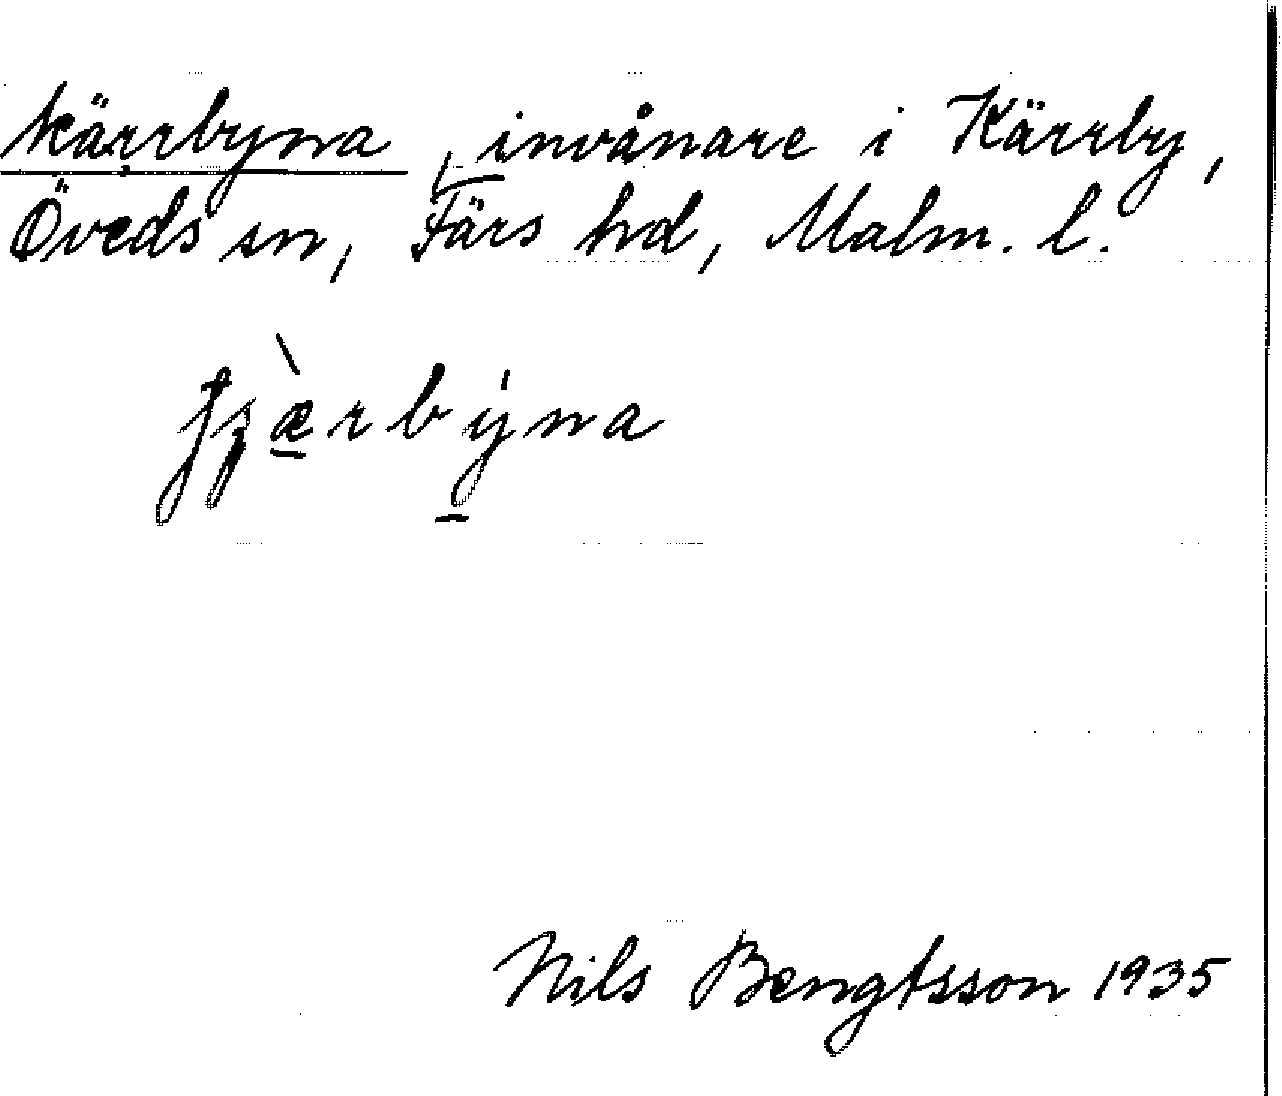 kärrbyna, invånare i Kärrby,
Öveds sn, Färs hd, Malm. l.
ʃʒæ̀rbýna
Nils Bengtsson 1935